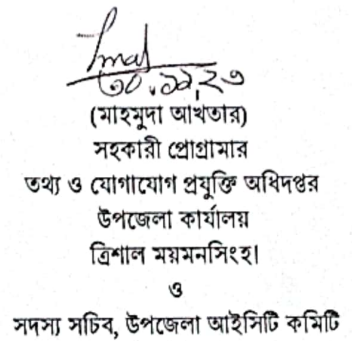 ৩০.১১.২৩
(মাহমুদা আখতার)
সহকারী প্রোগ্রামার
তথ্য ও যোগাযোগ প্রযুক্তি অধিদপ্তর
উপজেলা কার্যালয়
ত্রিশাল ময়মনসিংহ।
ও
সদস্য সচিব, উপজেলা আইসিটি কমিটি